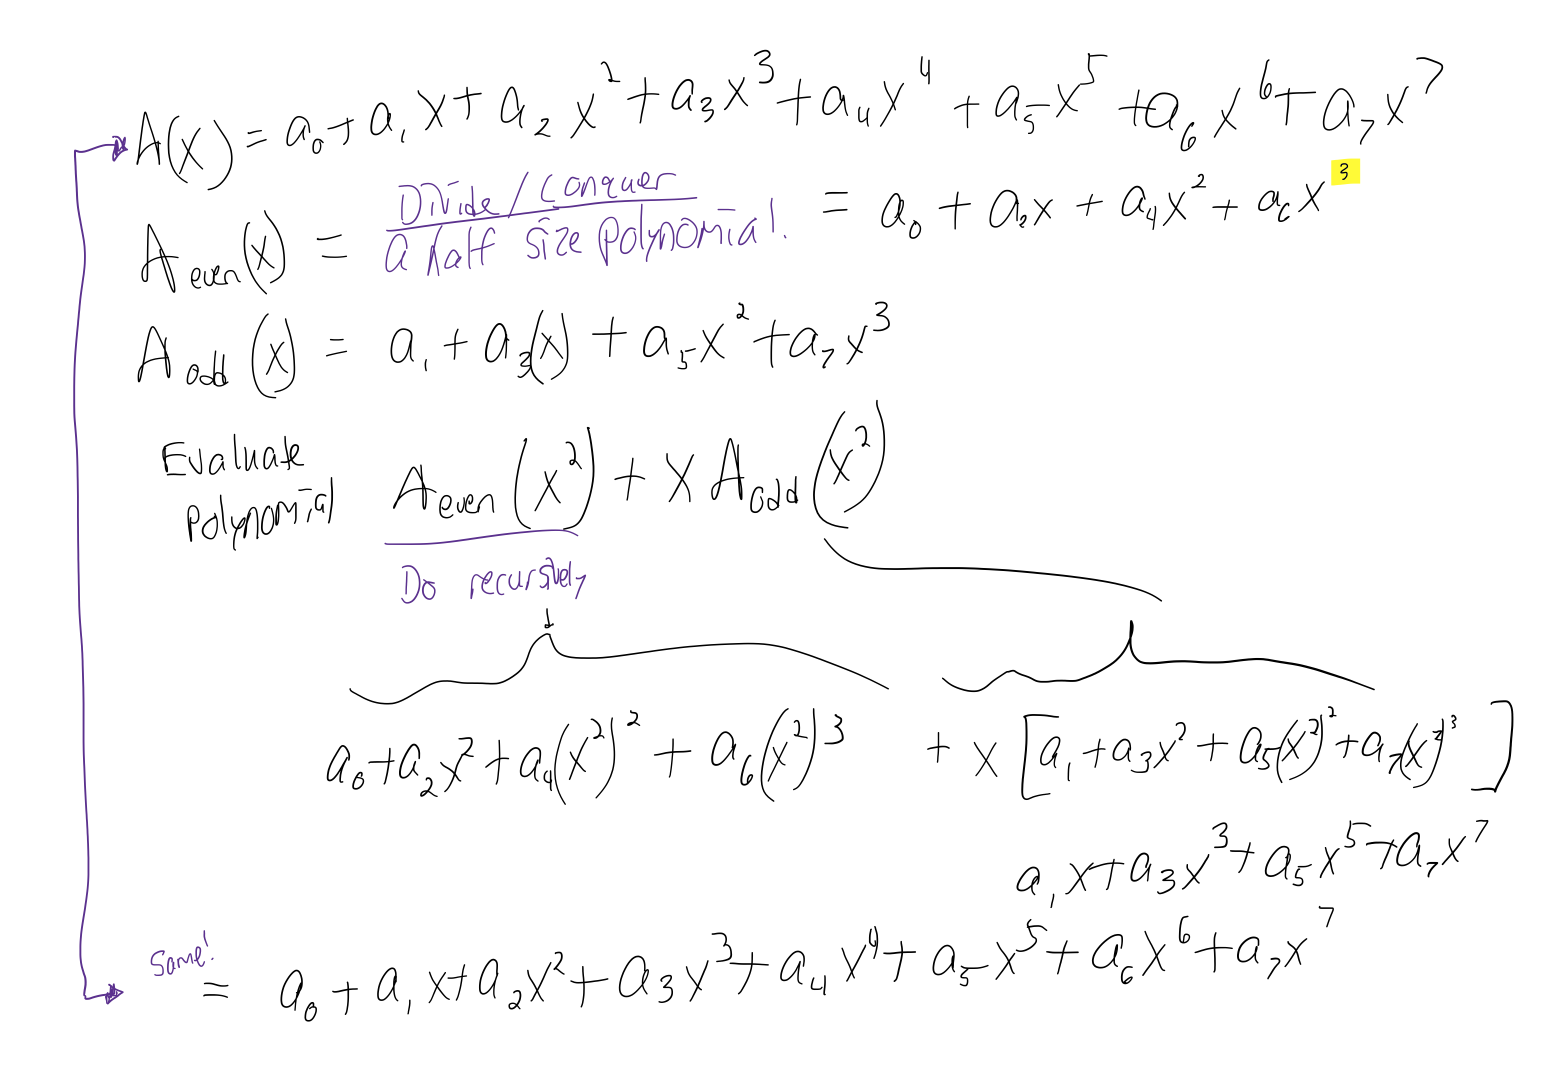 A(x) = a₀ + a₁x + a₂x² + a₃x³ + a₄x⁴ + a₅x⁵ + a₆x⁶ + a₇x⁷
A even (x) = Divide/Conquer a half size polynomial! = a₀ + a₂x + a₄x² + a₆x³
A odd (x) = a₁ + a₃(x) + a₅x² + a₇x³
Evaluate
polynomial A even (x²) + x A odd (x²)
Do recursively
a₀ + a₂x² + a₄(x²)² + a₆(x²)³ + x [a₁ + a₃x² + a₅(x²)² + a₇(x²)³]
a₁x + a₃x³ + a₅x⁵ + a₇x⁷
Same!
= a₀ + a₁x + a₂x² + a₃x³ + a₄x⁴ + a₅x⁵ + a₆x⁶ + a₇x⁷